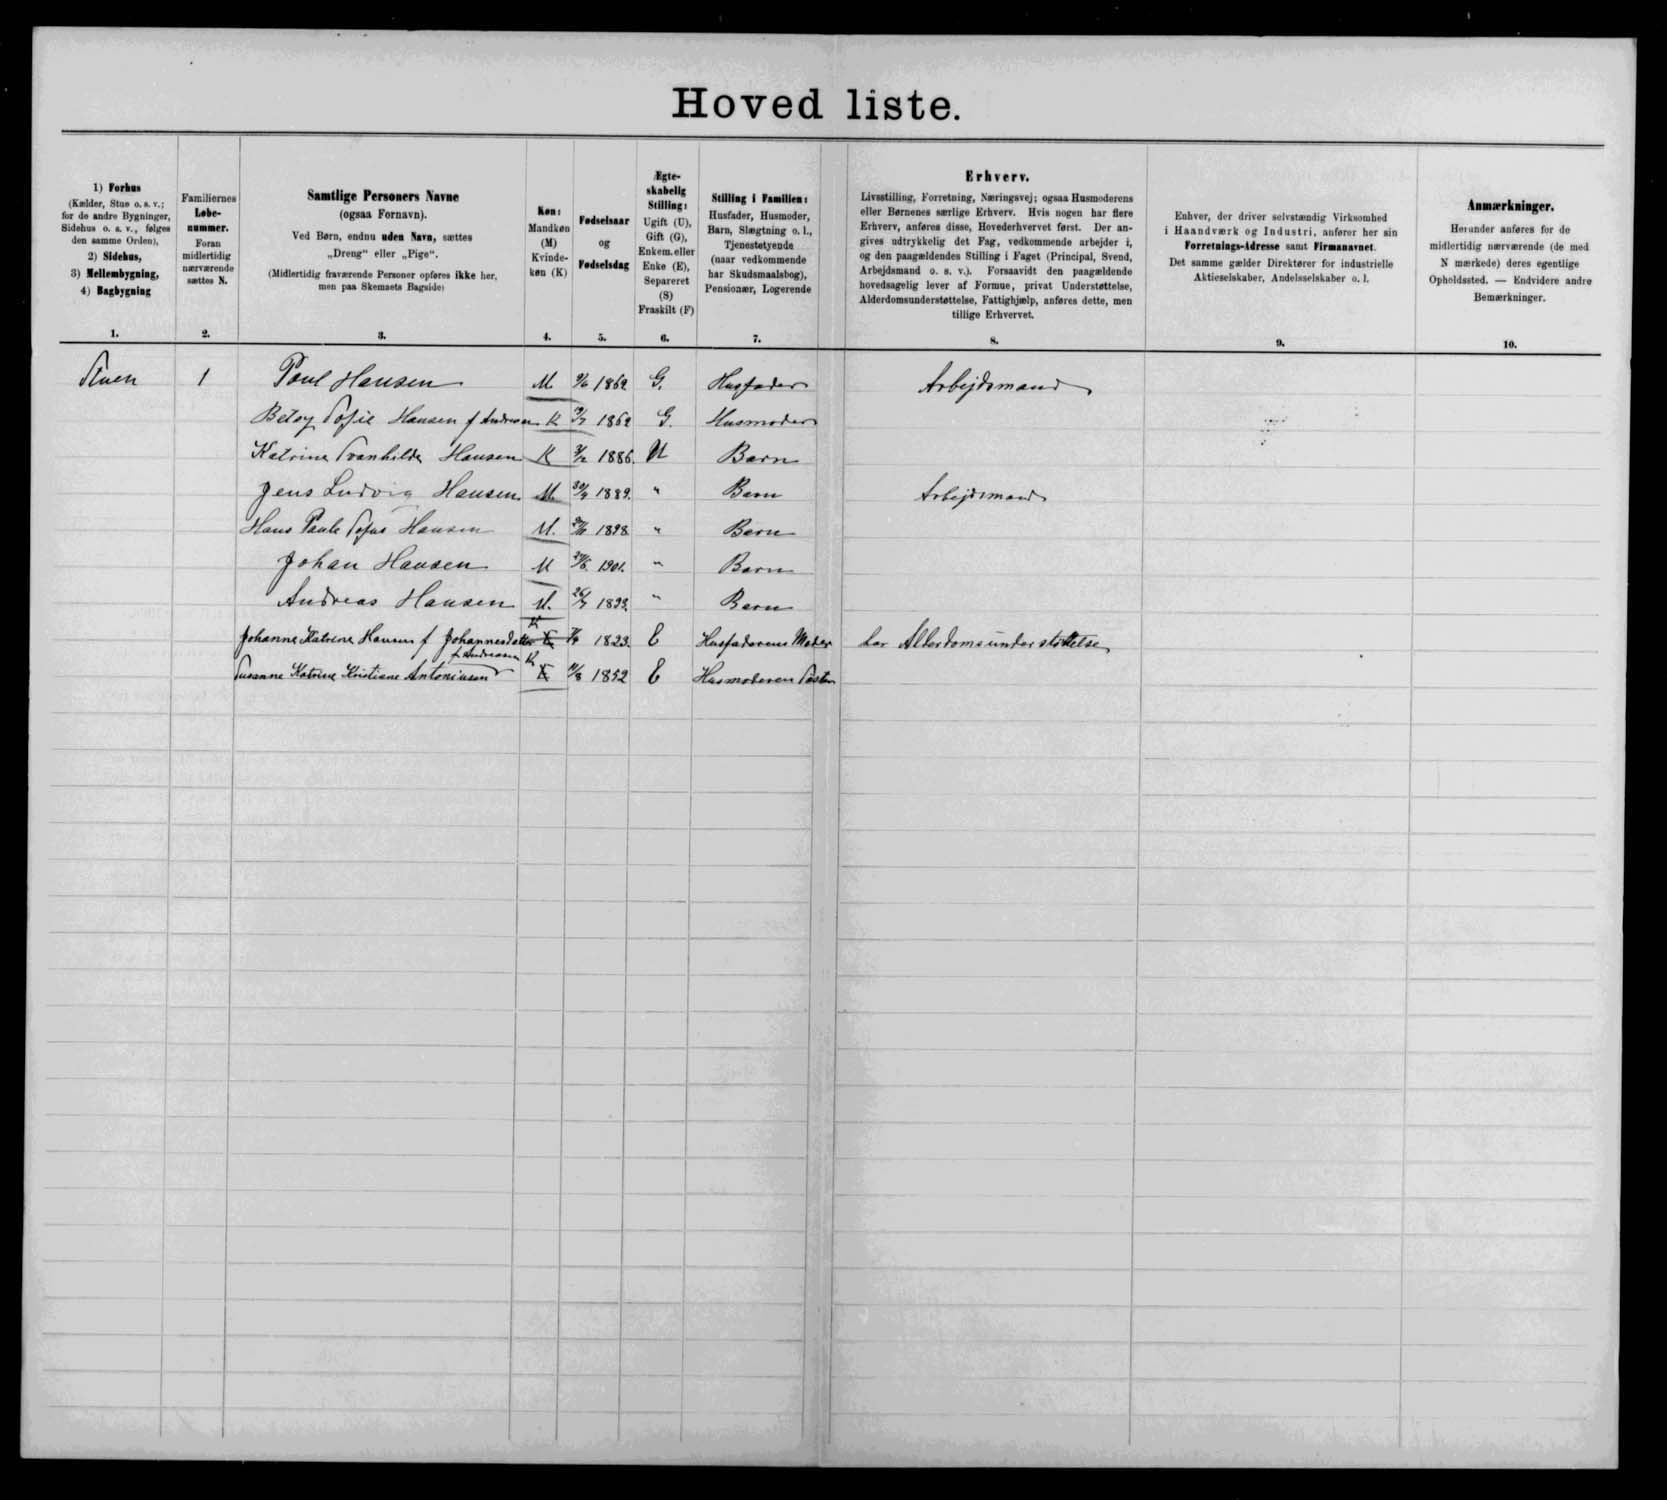 Hoved liste.
1) Forhus
(Kælder, Stue o. s. v.;
for de andre Bygninger,
Sidehus o. s. v., følges
den samme Orden),
2) Sidehus,
3) Mellembygning,
4) Bagbygning
1.
Familiernes
Løbe-
nummer.
Foran
midlertidig
nærværende
sættes N.
2.
Samtlige Personers Navne
(ogsaa Fornavn).
Ved Børn, endnu uden Navn, sættes
„Dreng“ eller „Pige“.
(Midlertidig fraværende Personer opføres ikke her,
men paa Skemaets Bagside)
3.
Køn:
Mandkøn
(M)
Kvinde-
køn (K)
4.
Fødselsaar
og
Fødselsdag
5.
Ægte-
skabelig
Stilling:
Ugift (U),
Gift (G),
Enkem. eller
Enke (E),
Separeret
(S)
Fraskilt (F)
6.
Stilling i Familien:
Husfader, Husmoder,
Barn, Slægtning o. l.,
Tjenestetyende
(naar vedkommende
har Skudsmaalsbog),
Pensionær, Logerende
7.
Erhverv.
Livsstilling, Forretning, Næringsvej; ogsaa Husmoderens
eller Børnenes særlige Erhverv. Hvis nogen har flere
Erhverv, anføres disse, Hovederhvervet først. Der an-
gives udtrykkelig det Fag, vedkommende arbejder i,
og den paagældendes Stilling i Faget (Principal, Svend,
Arbejdsmand o. s. v.). Forsaavidt den paagældende
hovedsagelig lever af Formue, privat Understøttelse,
Alderdomsunderstøttelse, Fattighjælp, anføres dette, men
tillige Erhvervet.
8.
Enhver, der driver selvstændig Virksomhed
i Haandværk og Industri, anfører her sin
Forretnings-Adresse samt Firmanavnet.
Det samme gælder Direktører for industrielle
Aktieselskaber, Andelsselskaber o. l.
9.
Anmærkninger.
Herunder anføres for de
midlertidig nærværende (de med
N mærkede) deres egentlige
Opholdssted. — Endvidere andre
Bemærkninger.
10.
Stuen 1 Poul Hansen M 1862 G. Husfader Arbejdsmand
Betsy Sofie Hansen f Andreasen K 1862 G. Husmoder
Katrine Svanhilde Hansen K 1886. U Barn
Jens Ludvig Hansen M 30/9 1889. " Barn Arbejdsmand
Hans Paule Sofus Hansen M. 1898. " Barn
Johan Hansen M 1901. " Barn
Andreas Hansen M. 26/7 1893. " Barn
Johanne Katrine Hansen f Johannesdatter K 1823. E Husfaderens Moder har Alderdomsunderstøttelse
f. Andreasen
Susanne Katrine Kristiane Antoniusen K 11/8 1852 E Husmoderen Søster